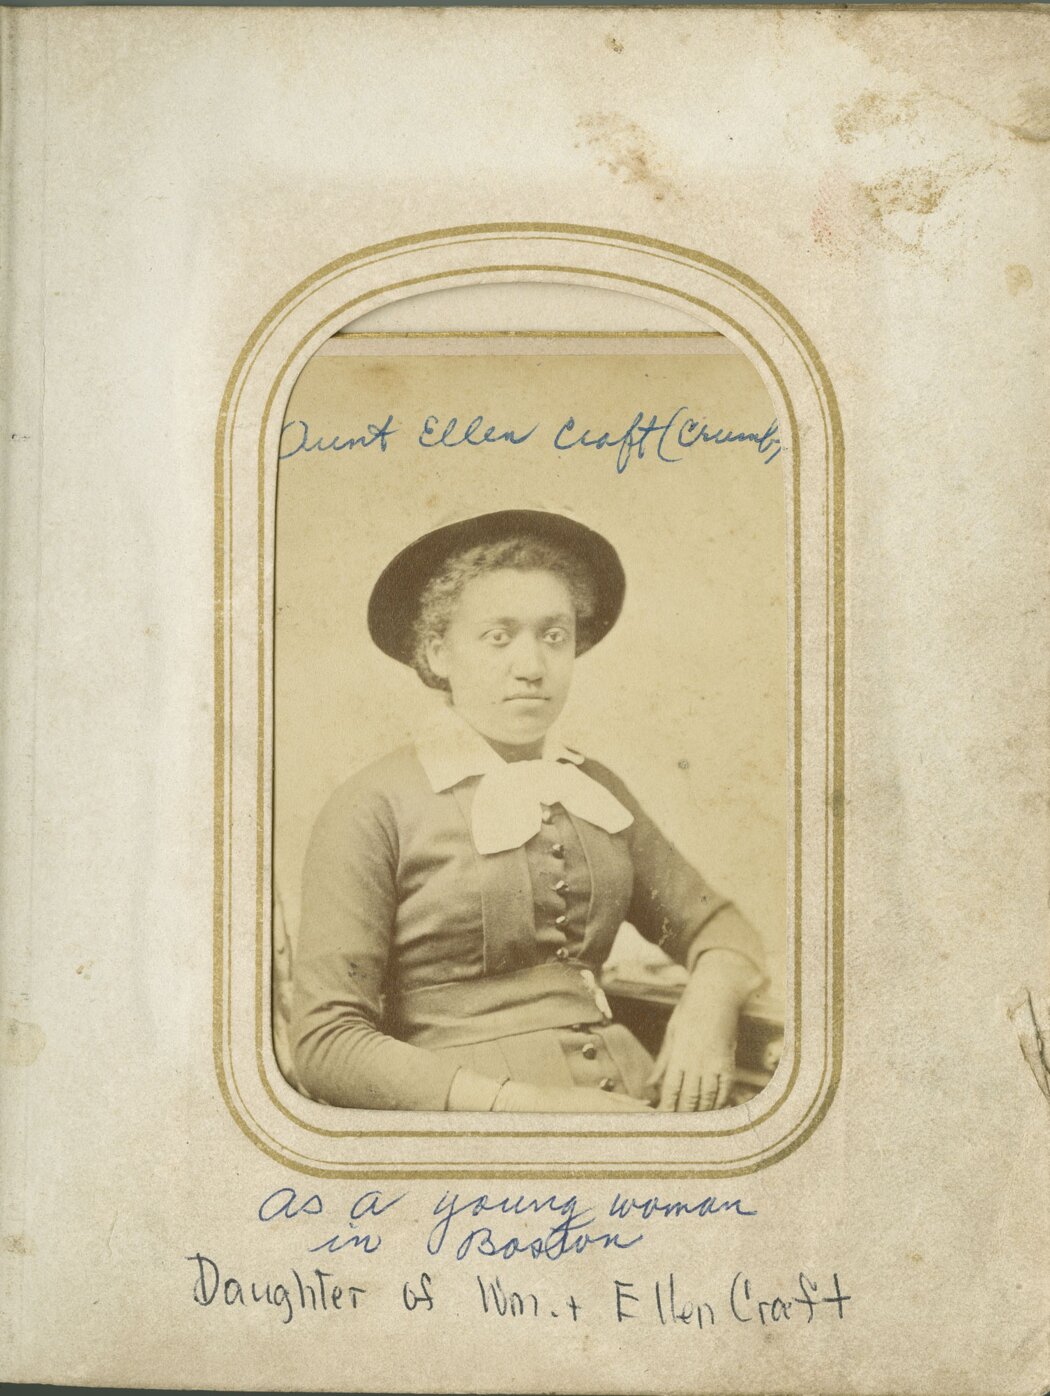 Aunt Ellen Craft (Crumb,
as a young woman
in Boston
Daughter of Wm. + Ellen Craft